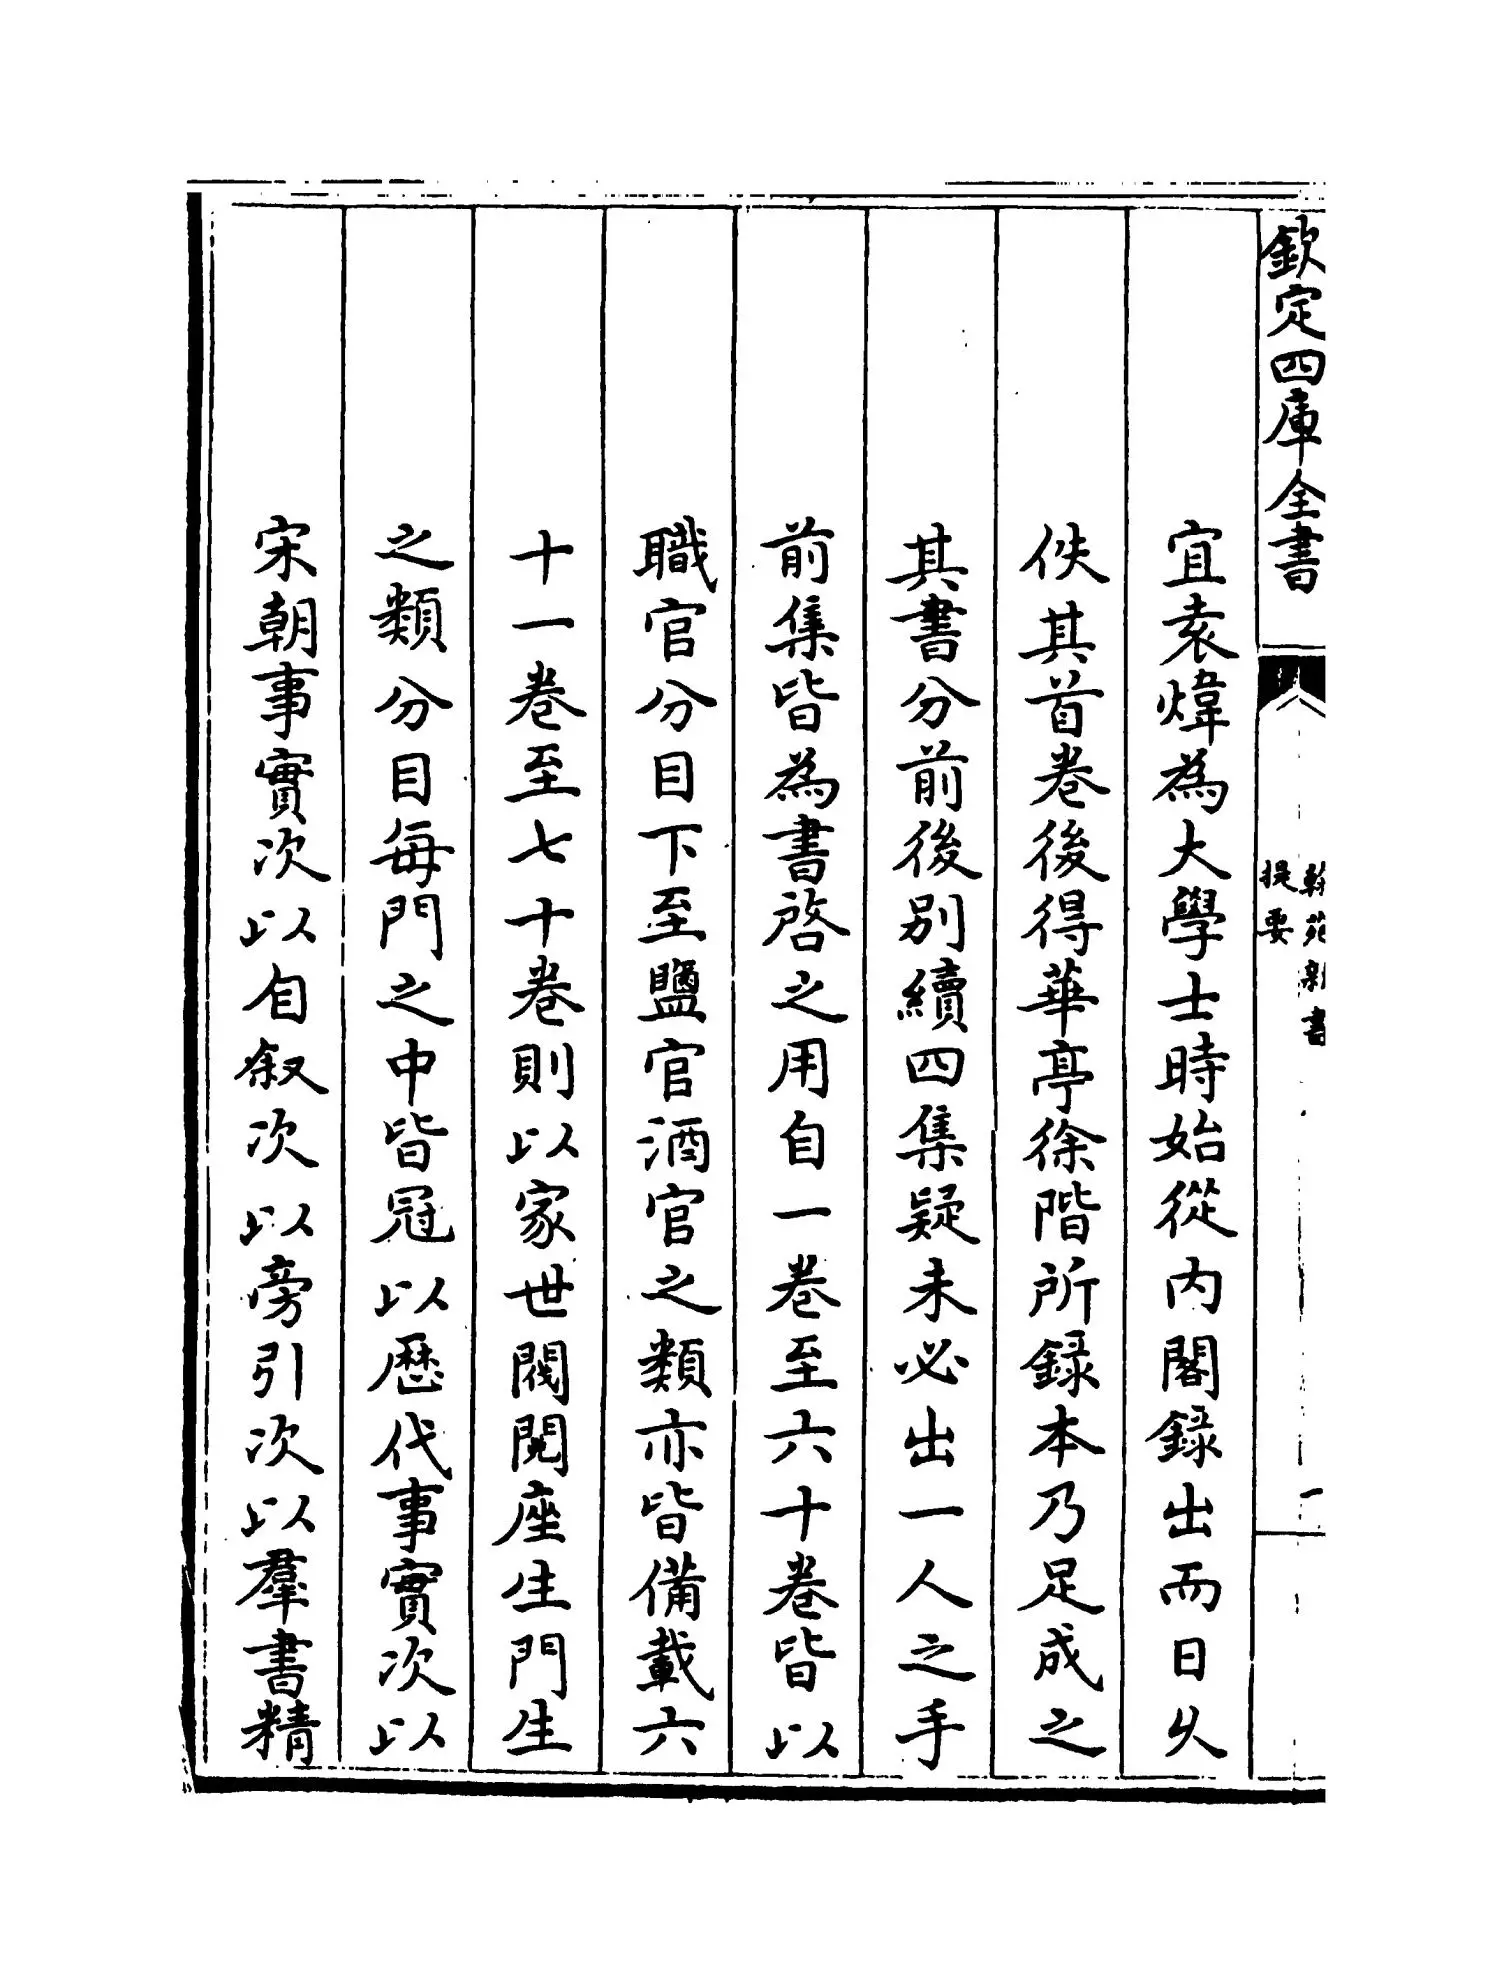 欽定四庫全書
翰苑新書
提要
一
宜袁煒為大學士時始從内閣録出而日乆
佚其首卷後得華亭徐階所録本乃足成之
其書分前後别續四集疑未必出一人之手
前集皆為書啓之用自一卷至六十卷皆以
職官分目下至鹽官酒官之類亦皆備載六
十一卷至七十卷則以家世閥閲座生門生
之類分目每門之中皆冠以歴代事實次以
宋朝事實次以自叙次以旁引次以羣書精